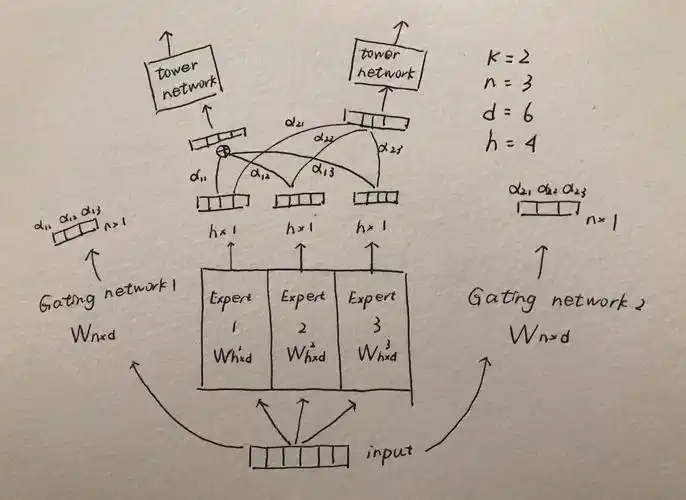 tower
network
tower
network
K=2
n=3
d=6
h=4
α₂₁
α₂₂
α₂₃
α₁₁
α₁₂
α₁₃
α₁₁ α₁₂ α₁₃
n×1
h×1
h×1
h×1
α₂₁ α₂₂ α₂₃
n×1
Gating network 1
Wn×d
Expert
1
W¹h×d
Expert
2
W²h×d
Expert
3
W³h×d
Gating network 2
Wn×d
input